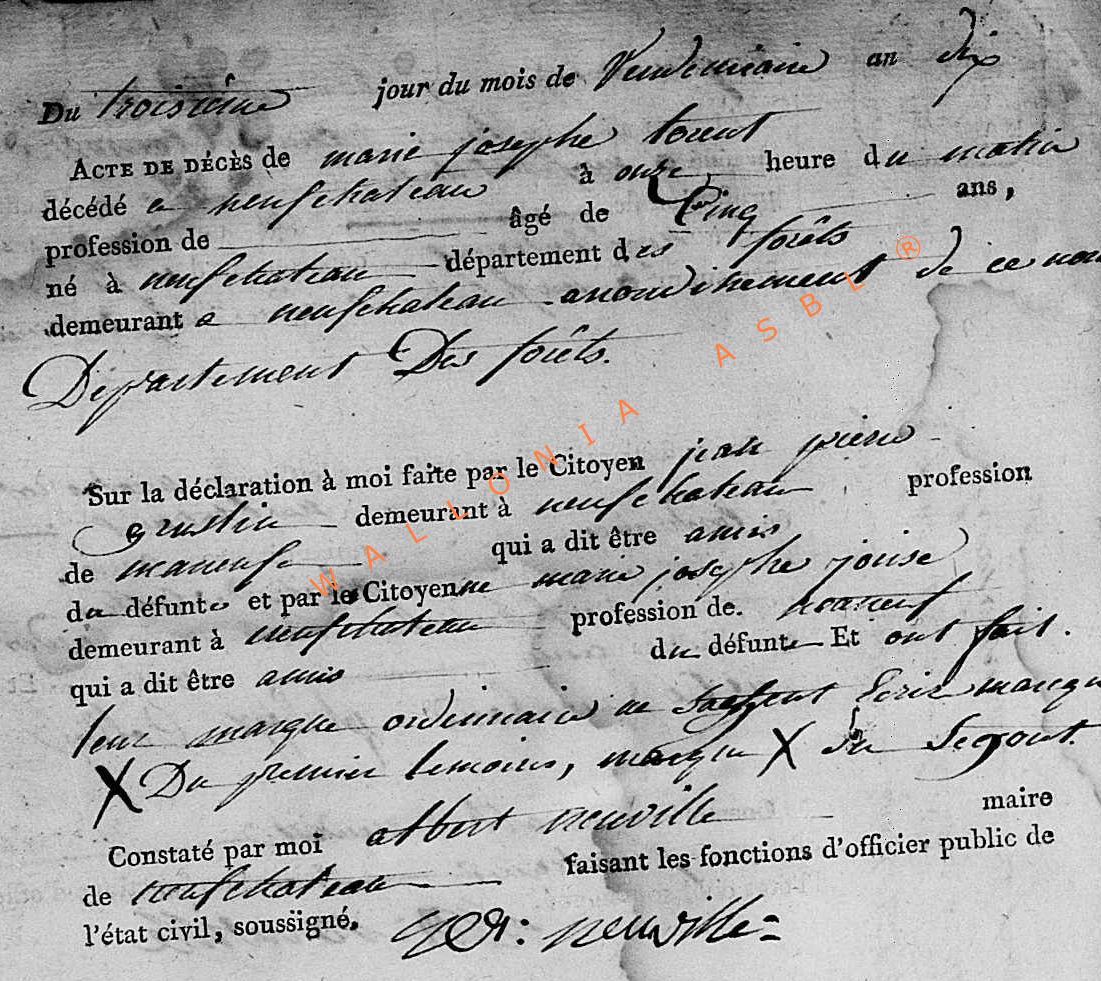 Du troisieme jour du mois de Vendemiaire an dix
ACTE DE DÉCÈS de marie josephe
décédé a neufchateau à onze heure du matin
profession de âgé de Cinq ans,
né à neufchateau département des forêts
demeurant a neufchateau arondissement de ce nom
Département Des forêts.
Sur la déclaration à moi faite par le Citoyen jean piere
demeurant à neufchateau profession
de qui a dit être amis
du défunte et par le Citoyenne marie josephe
demeurant à neufchateau profession de.
qui a dit être amis du défunte Et ont fait.
leur marque ordinnaire ne Ecrir marque
X Du premier temoins, marque X du Segont.
Constaté par moi albert neuville maire
de neufchateau faisant les fonctions d'officier public de
l'état civil, soussigné. neuville
WALLONIA ASBL ®